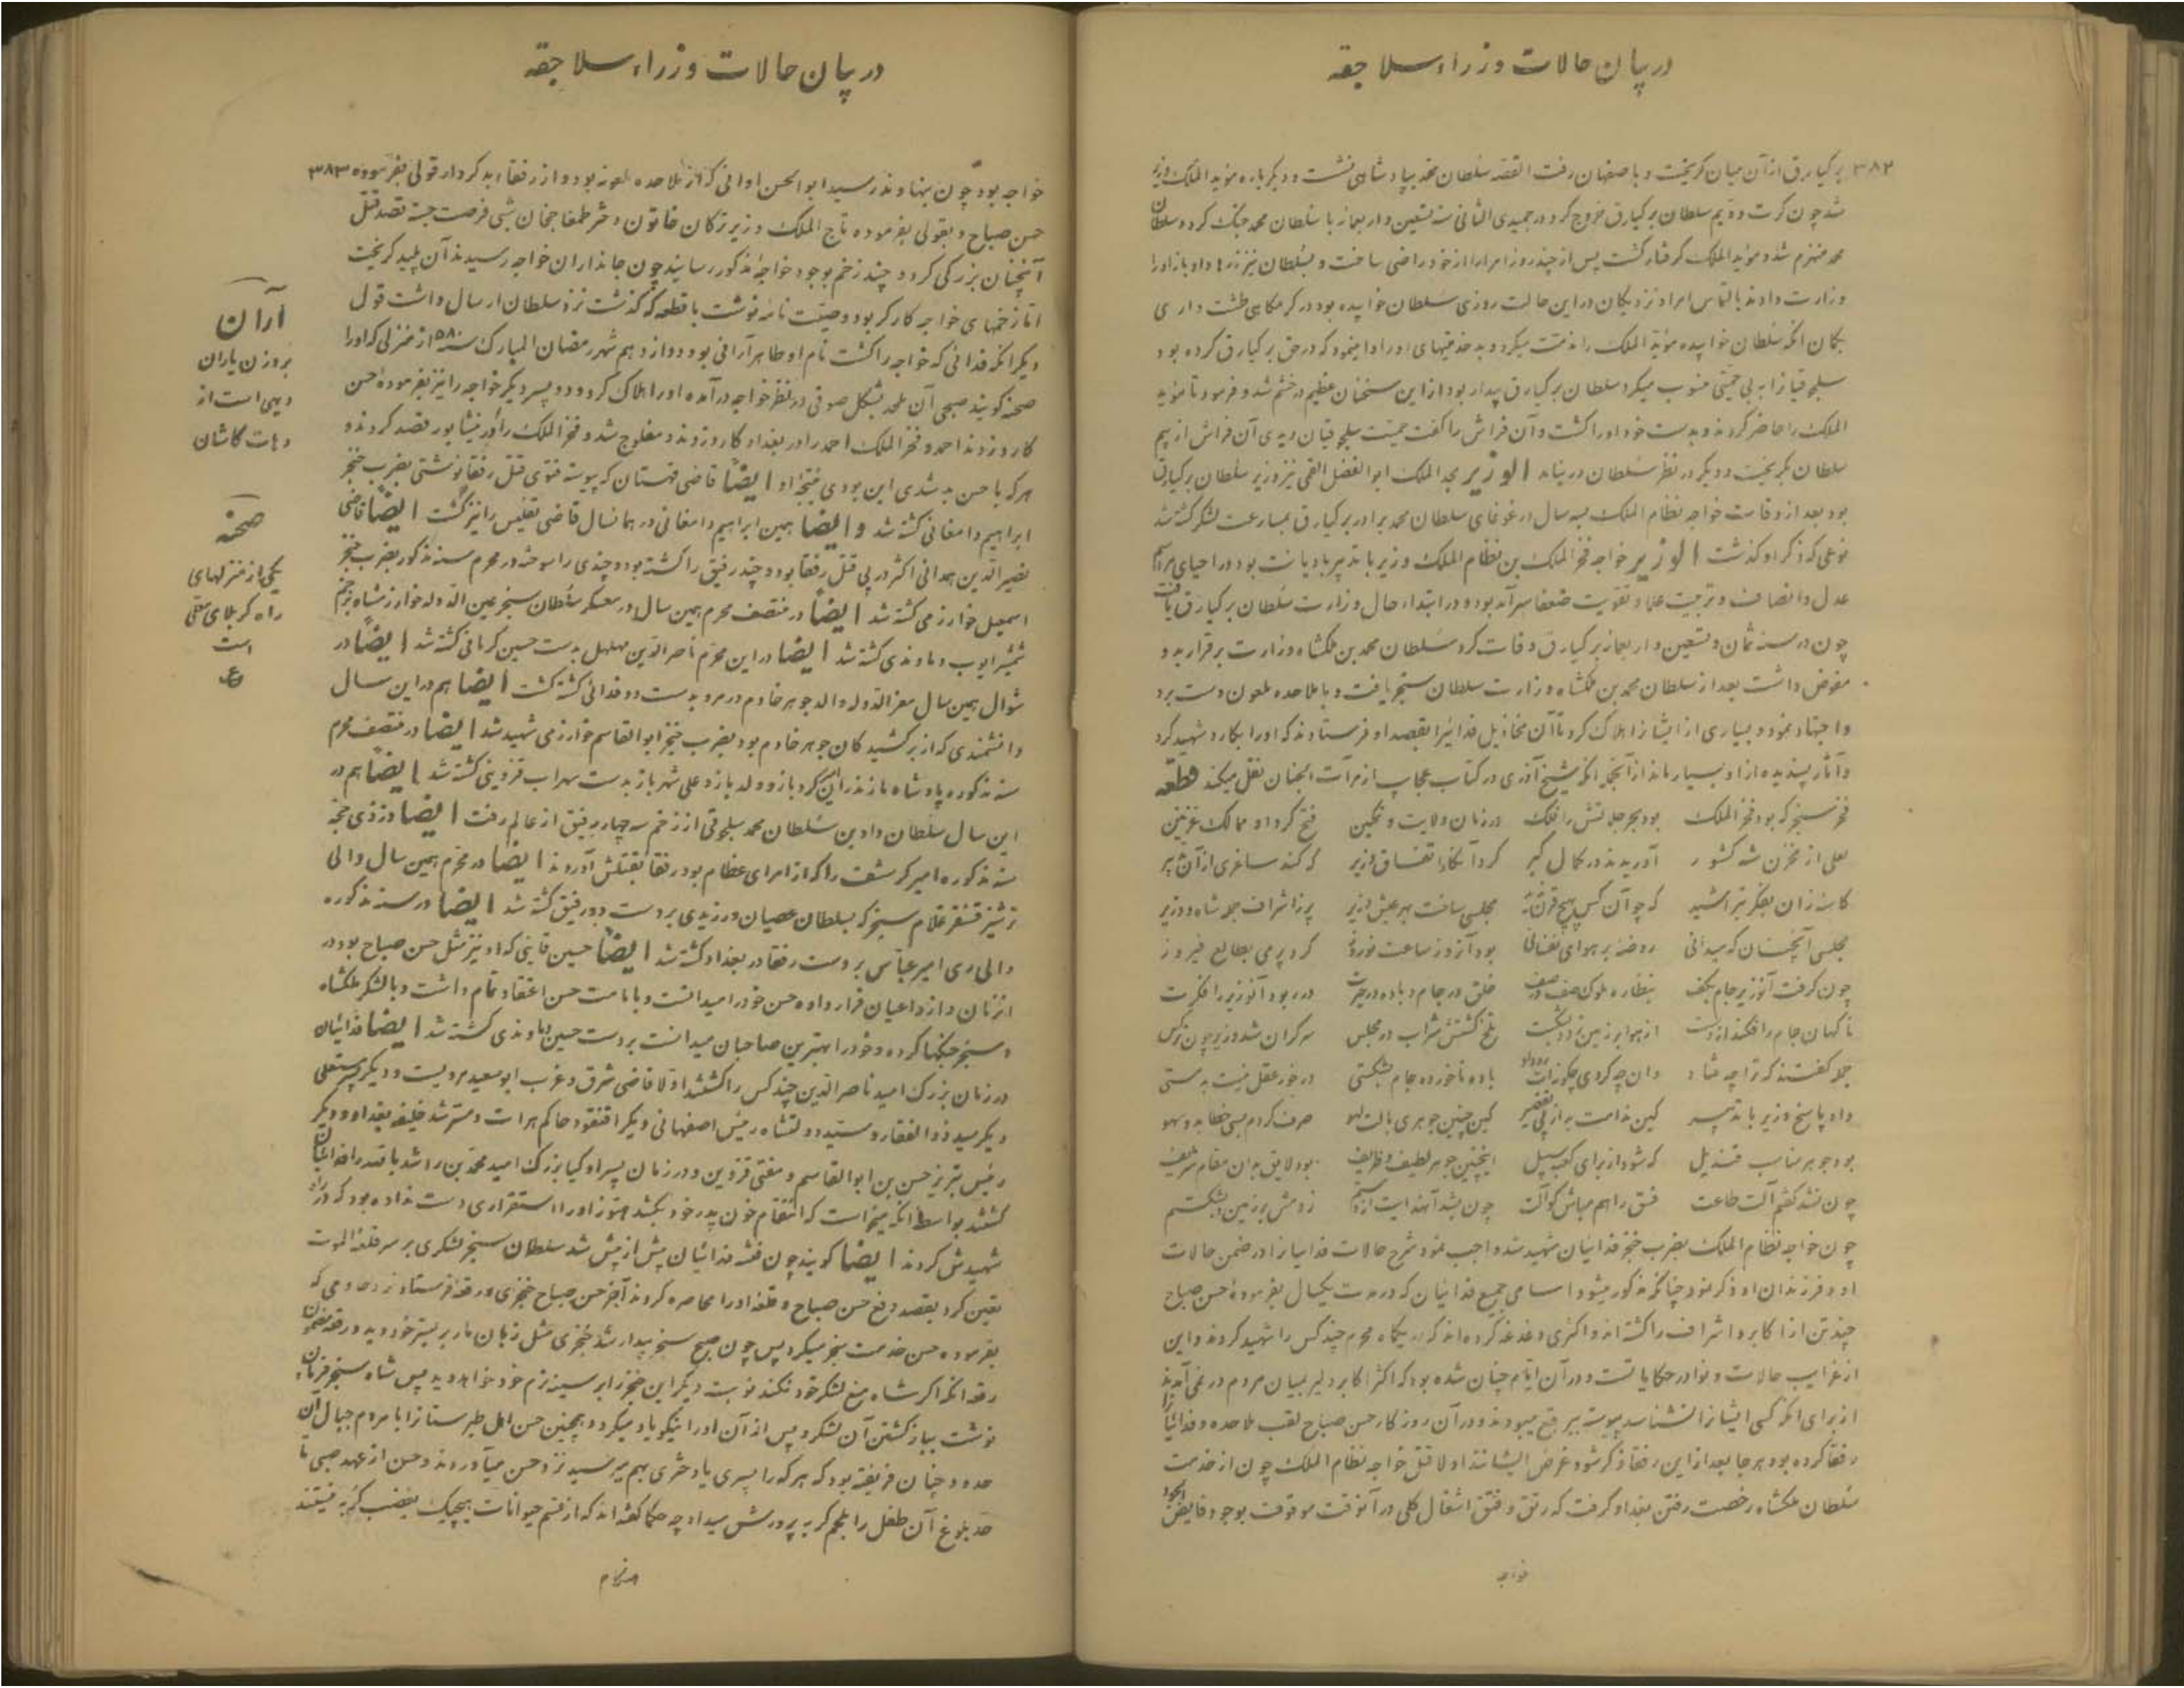 در بیان حالات وزراء سلاجقه
۳۸۲
برکیارق از آن میان گریخت و باصفهان رفت القصه سلطان محمد بپادشاهی نشست و دیگرباره مؤید الملک وزیر
شد چون کرت دویم سلطان برکیارق خروج کرد در جمیدی الثانی سنه تسعین و اربعمائه با سلطان محمد جنگ کرد و سلطان
محمد منهزم شد و مؤید الملک گرفتار گشت پس از چند روز امرا را از خود راضی ساخت و بسلطان نیز زرها داد و باز او را
وزارت دادند بالتماس امرا و نزدیکان در این حالت روزی سلطان خوابیده بود در گرمگاهی طشت داری
بگمان آنکه سلطان خوابیده مؤید الملک را مذمت میکرد و بدخدمتیهای او را ادا مینمود که در حق برکیارق کرده بود
سلجوقیانرا به بی حمیتی منسوب میکرد سلطان برکیارق بیدار بود از این سخنان عظیم در خشم شد و فرمود تا مؤید
الملک را حاضر کردند و بدست خود او را کشت و آن فراش را گفت حمیت سلجوقیان دیدی آن فراش از بیم
سلطان بگریخت و دیگر در نظر سلطان در نیامد الوزیر مجد الملک ابوالفضل القمی نیز وزیر سلطان برکیارق
بود بعد از وفات خواجه نظام الملک بسه سال در غوغای سلطان محمد برادر برکیارق بمسارعت لشکر کشته شد
نوعی که ذکر او گذشت الوزیر خواجه فخر الملک بن نظام الملک وزیر با تدبیر با دیانت بود در احیای مراسم
عدل و انصاف و تربیت علما و تقویت ضعفا سرآمد بود و در ابتداء حال وزارت سلطان برکیارق یافت
چون در سنه ثمان و تسعین و اربعمائه برکیارق وفات کرد سلطان محمد بن ملکشاه وزارت برقرار بدو
مفوض داشت بعد از سلطان محمد بن ملکشاه وزارت سلطان سنجر یافت و با ملاحده ملعون دست برد
و اجتهاد نمود و بسیاری از ایشانرا هلاک کرد تا آن مخاذیل فدائیرا بقصد او فرستادند که او را بکارد شهید کرد
و آثار پسندیده از او بسیار ماند از آنجمله آنکه شیخ آذری در کتاب عجایب از مرآت الجنان نقل میکند قطعه
فخر سنجر که بود فخر الملک بود بحر جلالتش را فلک در زمان ولایت و تمکین فتح کرد او ممالک غزنین
لعلی از مخزن شه کشور آوریدند در کمال کبر کرد آنگاه اتفاق وزیر که کند ساغری از آن
کاسه زان بفکر بتراشید که چو آن کس بهیچ قرن ندید مجلسی ساخت بهر عیش وزیر پر ز اشراف جمله شاه و وزیر
مجلسی آنچنان که میدانی روضه بر هوای نفسانی بود آنروز ساعت نوروز کرد پر می بطالع فیروز
چون گرفت آنوزیر جام بکف بنظاره ملوک صف در صف خلق در جام و باده در حیرت در ربود آنوزیر را فکرت
ناگهان جام را فکند از دست از هوا بر زمین زد و بشکست تلخ گشتش شراب در مجلس سرگران شد وزیر چون نرگس
جمله گفتند که ترا چه فتاد وان چه کردی چگونه رو داد باده ناخورده جام بشکستی در خور عقل نیست بدمستی
داد پاسخ وزیر با تدبیر کین ندامت به از پی تقصیر کین چنین جوهری بآلت لهو صرف کردم بسی خطا بد و سهو
بود جوهر مناسب قندیل که شود از برای کعبه سبیل اینچنین جوهر لطیف و ظریف بود لایق بدان مقام شریف
چون نشد گفتم آلت طاعت فسق را هم مباش گو آلت زدمش بر زمین و بشکستم
چون خواجه نظام الملک بضرب خنجر فدائیان شهید شد واجب نمود شرح حالات فدائیانرا در ضمن حالات
او و فرزندان او ذکر نمود چنانکه مذکور میشود اسامی جمیع فدائیان که در مدت یکسال بفرموده حسن صباح
چند تن از اکابر و اشراف را کشته اند و اکثری دغدغه کرده اند که در یکماه محرم چند کس را شهید کردند و این
از غرایب حالات و نوادر حکایاتست و در آن ایام چنان شده بود که اکثر اکابر دلیر بمیان مردم در نمی آمدند
از برای آنکه کسی ایشانرا نشناسد پیوست ببرقع میبودند و در آن روزگار حسن صباح لقب ملاحده و فدائیانرا
رفقا کرده بود هر جا بعد از این رفقا ذکر شود غرض ایشانند اولا قتل خواجه نظام الملک چون از خدمت
سلطان ملکشاه رخصت رفتن بغداد گرفت که رتق و فتق اشغال کلی در آنوقت موقوف بوجود فایض الجود
خواجه
در بیان حالات وزراء سلاجقه
۳۸۳
خواجه بود چون بنهاوند رسید ابوالحسن اوانی که از ملاحده ملعونه بود و از رفقاء بدکردار قولی بفرموده
حسن صباح و بقولی بفرموده تاج الملک وزیر ترکان خاتون دختر طمغاجخان شبی فرصت جسته قصد قتل
آنچنان بزرگی کرد و چند زخم بوجود خواجه مذکور رسانید چون جانداران خواجه رسیدند آن پلید گریخت
اما زخمهای خواجه کارگر بود وصیت نامه نوشت با قطعه که گذشت نزد سلطان ارسال داشت قول
دیگر آنکه فدائی که خواجه را کشت نام او طاهر آرانی بود دوازدهم شهر رمضان المبارک سنه ۵۸۰ از منزلی که او را
صحنه گویند صبحی آن ملحد بشکل صوفی در نظر خواجه درآمده او را هلاک کرد و دو پسر دیگر خواجه را نیز بفرموده حسن
کارد زدند احمد و فخر الملک احمد را در بغداد کارد زدند و مفلوج شد و فخر الملک را در نیشابور قصد کردند و
هرکه با حسن بد شدی این بودی نتیجه او ایضاً قاضی قهستان که پیوسته فتوی قتل رفقا نوشتی بضرب خنجر
ابراهیم دامغانی کشته شد و ایضا همین ابراهیم دامغانی در همانسال قاضی تفلیس را نیز کشت ایضاً قاضی
نصیر الدین همدانی اکثر در پی قتل رفقا بود و چند رفیق را کشته بود و چندی را سوخته در محرم سنه مذکور بضرب خنجر
اسمعیل خوارزمی کشته شد ایضاً در منتصف محرم همین سال در معسکر سلطان سنجر یمین الدوله خوارزمشاه بزخم
شمشیر ایوب دماوندی کشته شد ایضا در این محرم ناصر الدین مهلهل بدست حسین کرمانی کشته شد ایضاً در
شوال همین سال معز الدوله والد جوهر خادم در مرو بدست دو فدائی کشته گشت ایضا هم در این سال
دانشمندی که از برکشیدگان جوهر خادم بود بضرب خنجر ابوالقاسم خوارزمی شهید شد ایضا در منتصف محرم
سنه مذکوره پادشاه مازندران گردبازو ولد بازو علی شهریار بدست سهراب قزوینی کشته شد ایضاً هم در
این سال سلطان داود بن سلطان محمد سلجوقی از زخم سه چهار رفیق از عالم رفت ایضا در ذی حجه
سنه مذکوره امیر کرشف را که از امرای عظام بود رفقا بقتلش آوردند ایضا در محرم همین سال والی
ترشیز قشقر غلام سنجر که بسلطان عصیان ورزیدی بر دست دو رفیق کشته شد ایضا در سنه مذکوره
والی ری امیر عباس بر دست رفقا در بغداد کشته شد ایضاً حسین قاینی که او نیز مثل حسن صباح بود در
انزمان و از داعیان قرار داده حسن خود را میدانست و بامامت حسن اعتقاد تمام داشت و با لشکر ملکشاه
و سنجر جنگها کرده و خود را بهترین صاحبان میدانست بر دست حسین دماوندی کشته شد ایضا فدائیان
در زمان بزرگ امید ناصر الدین چند کس را کشتند اولا قاضی شرق و غرب ابو سعید هرویست و دیگر پسر مستعلی
دیگر سید ذوالفقار و سید دولتشاه رئیس اصفهانی دیگر اقتقود حاکم هرات و مسترشد خلیفه بغداد و دیگر
رئیس تبریز حسن بن ابوالقاسم و مفتی قزوین و در زمان پسر او کیا بزرگ امید محمد بن راشد بالله را فدائیان
کشتند بواسطه آنکه میخواست که انتقام خون پدر خود بکشد هنوز او را استقراری دست نداده بود که در راه
شهیدش کردند ایضا گویند چون فتنه فدائیان بیش از پیش شد سلطان سنجر لشکری بر سر قلعه الموت
تعین کرد بقصد دفع حسن صباح و قلعه او را محاصره کردند آخر حسن صباح خنجری و رقعه فرستاد نزد خادمی که
بفرموده حسن خدمت سنجر میکرد پس چون صبح سنجر بیدار شد خنجری مثل زبان مار بر بستر خود دید و رقعه مضمون
رقعه آنکه اگر شاه منع لشکر خود نکند نوبت دیگر این خنجر را بر سینه نرم خود خواهد دید پس شاه سنجر فرمان
نوشت بباز گشتن آن لشکر و پس از آن او را نیکو یاد میکرد و همچنین حسن اهل طبرستانرا با مردم جبال آن
حدود چنان فریفته بود که هر که را پسری یا دختری بهم میرسید نزد حسن میآوردند و حسن از عهد صبی تا
حد بلوغ آن طفل را بلحم گربه پرورش میداد چه حکما گفته اند که از قسم حیوانات هیچیک بغضب گربه نیستند
هنگام
آران
بروزن یاران
دیهی است از
دهات کاشان
صحنه
یکی از منزلهای
راه کربلای معلی
است